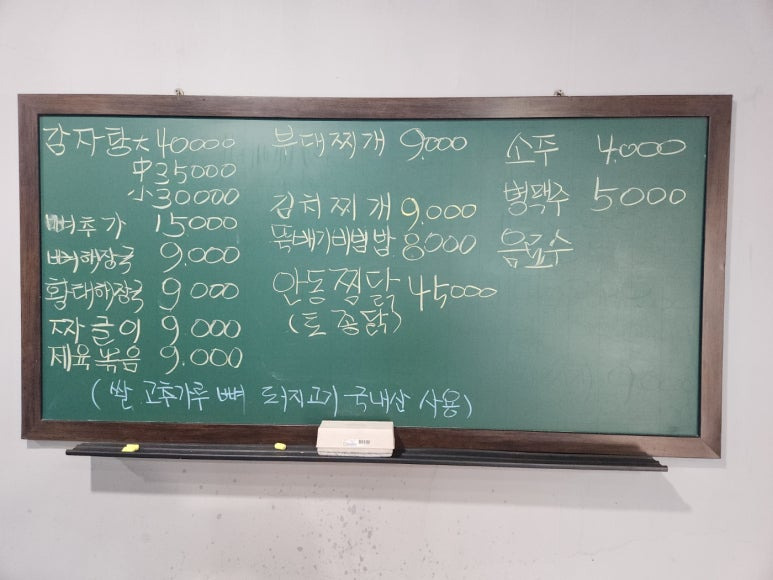 감자탕 大 40000
中 35000
小 30000
뼈추가 15000
뼈해장국 9.000
황태해장국 9000
짜글이 9000
제육볶음 9.000
부대찌개 9.000
김치찌개 9.000
뚝배기비빔밥 8000
안동찜닭 45000
(토종닭)
소주 4.000
병맥주 5000
음료수
(쌀 고추가루 뼈 돼지고기 국내산 사용)